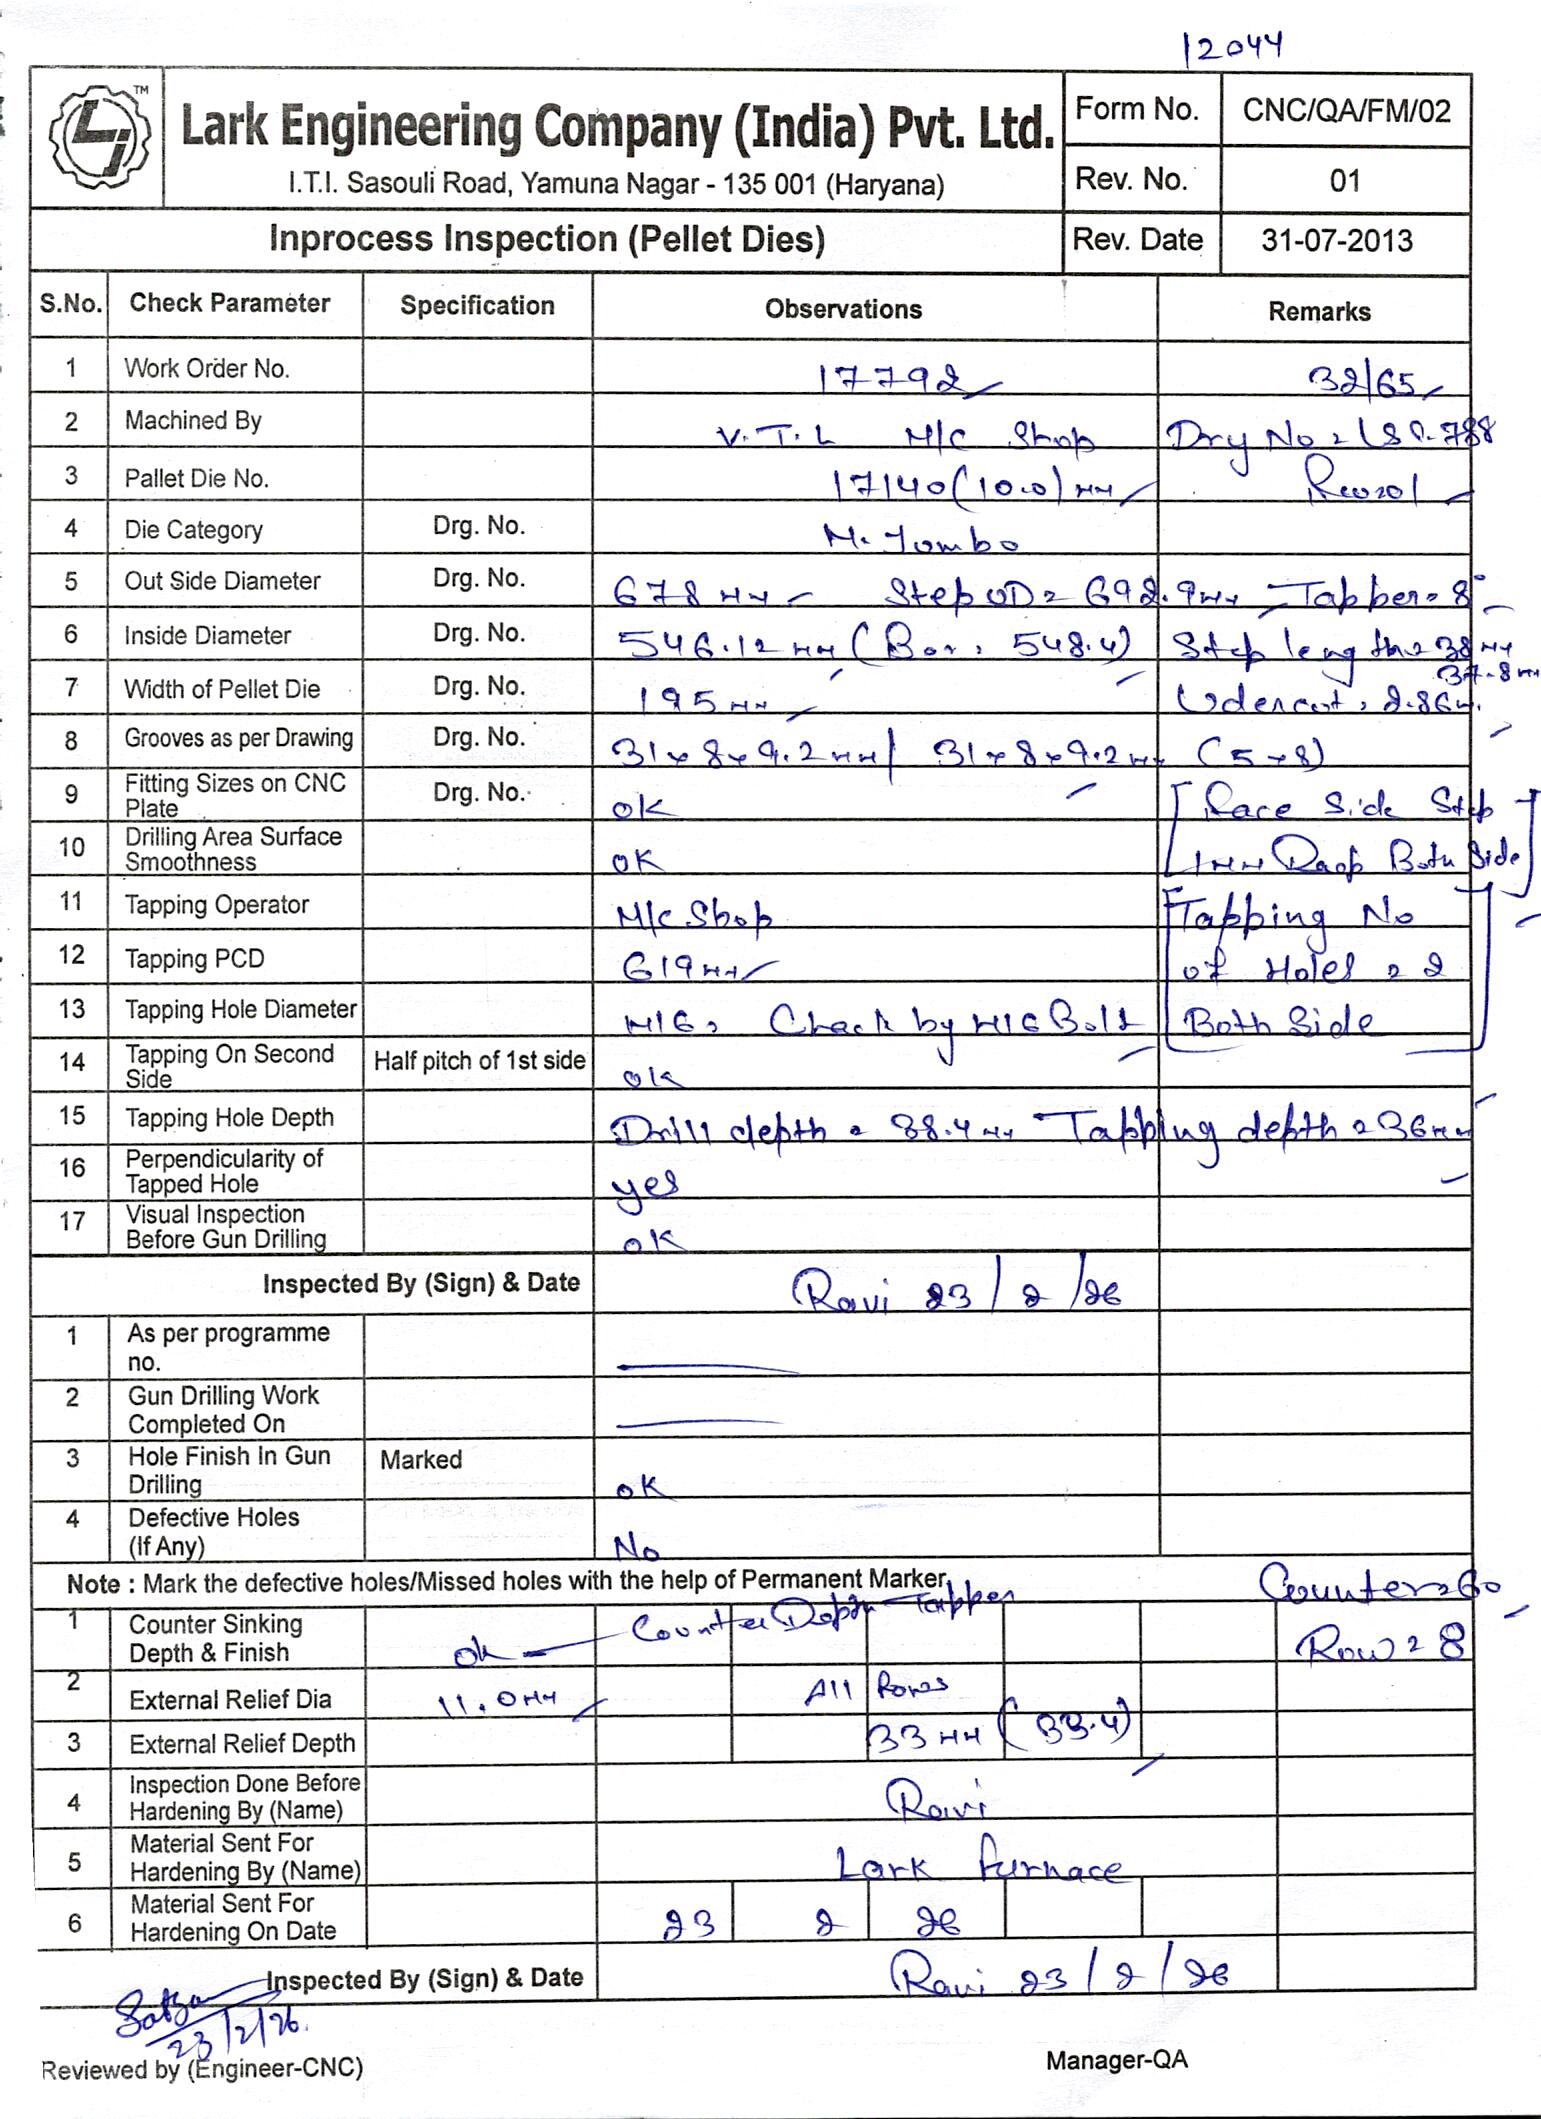 12044
TM
Lark Engineering Company (India) Pvt. Ltd.
I.T.I. Sasouli Road, Yamuna Nagar - 135 001 (Haryana)
Form No. CNC/QA/FM/02
Rev. No. 01
Inprocess Inspection (Pellet Dies) Rev. Date 31-07-2013
S.No. Check Parameter Specification Observations Remarks
1 Work Order No. 17792 32/65
2 Machined By V.T.L M/C Shop
3 Pallet Die No. 17140 (10.0) MM
4 Die Category Drg. No. M. Jombo
5 Out Side Diameter Drg. No. 678 MM Step OD = 692.9 MM Tapper = 8°
6 Inside Diameter Drg. No. 546.12 MM (Bor = 548.4) Step length = 38 MM
37.8 MM
7 Width of Pellet Die Drg. No. 195 MM Udercut = 2.86
8 Grooves as per Drawing Drg. No. 31 x 8 x 9.2 MM / 31 x 8 x 9.2 MM (5 x 8)
9 Fitting Sizes on CNC Plate Drg. No. OK [Race Side Step
10 Drilling Area Surface Smoothness OK 1 MM Both Side]
11 Tapping Operator M/C Shop [Tapping No
12 Tapping PCD 619 MM of Holes = 2
13 Tapping Hole Diameter M16, Check by M16 Bolt Both Side]
14 Tapping On Second Side Half pitch of 1st side ok
15 Tapping Hole Depth Drill depth = 38.4 MM Tapping depth = 36 MM
16 Perpendicularity of Tapped Hole yes
17 Visual Inspection Before Gun Drilling OK
Inspected By (Sign) & Date Ravi 23/2/26
1 As per programme no.
2 Gun Drilling Work Completed On
3 Hole Finish In Gun Drilling Marked OK
4 Defective Holes (If Any) No
Note : Mark the defective holes/Missed holes with the help of Permanent Marker. Counter = 60
1 Counter Sinking Depth & Finish ok Counter Depth Tapper Row = 8
2 External Relief Dia 11.0 MM All Rows
3 External Relief Depth 33 MM (33.4)
4 Inspection Done Before Hardening By (Name) Ravi
5 Material Sent For Hardening By (Name) Lark furnace
6 Material Sent For Hardening On Date 23 2 26
Inspected By (Sign) & Date Ravi 23/2/26
23/2/26.
Reviewed by (Engineer-CNC) Manager-QA